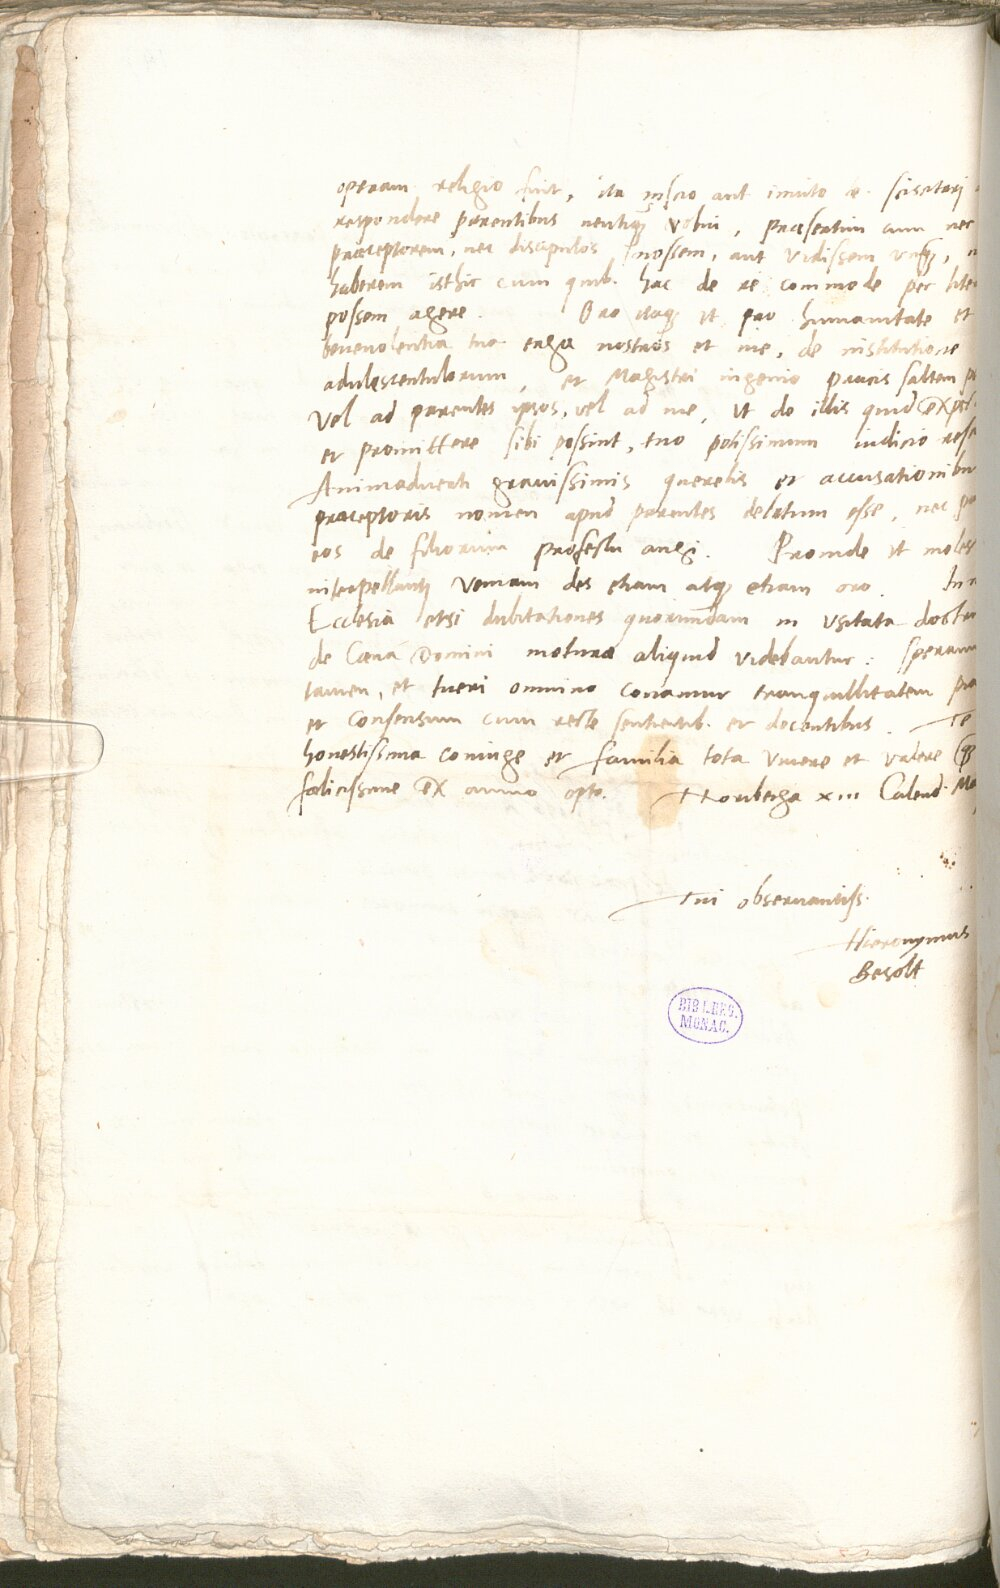 operam religio fuit, ita inscio aut inuito te sciscitari
respondere parentibus neutiq; volui, praesertim cum nec
praeceptorem, nec discipulos nossem, aut vidissem vnq;,
haberem isthic cum quib. hac de re commode per lite
possem agere. Oro itaq; vt pro humanitate et
beneuolentia tua erga nostros et me, de institutione
adulescentulorum, et Magistri ingenio paucis saltem
Vel ad parentes ipsos, vel ad me, vt de illis quid
et promittere sibi possint, tuo potissimum iudicio
Animaduerti grauissimis querelis et accusationibu
praeceptoris nomen apud parentes delatum esse, nec
eos de filiorum profectu angi. Proinde vt
interpellanti veniam des etiam atq; etiam oro.
Ecclesia etsi dubitationes quorundam in vsitata doctri
de Caena Domini moturae aliquid videbantur: speram
tamen, et tueri omnino conamur tranquillitatem
et Consensum cum recte sentientib. et docentibus. Te
honestissima coniuge et familia tota viuere et valere q;
faelicissime ex animo opto. Norberga xiii Calend. Ma
Tui obseruantiss.
Hieronymus
Besolt
BIBL.REG.
MONAC.